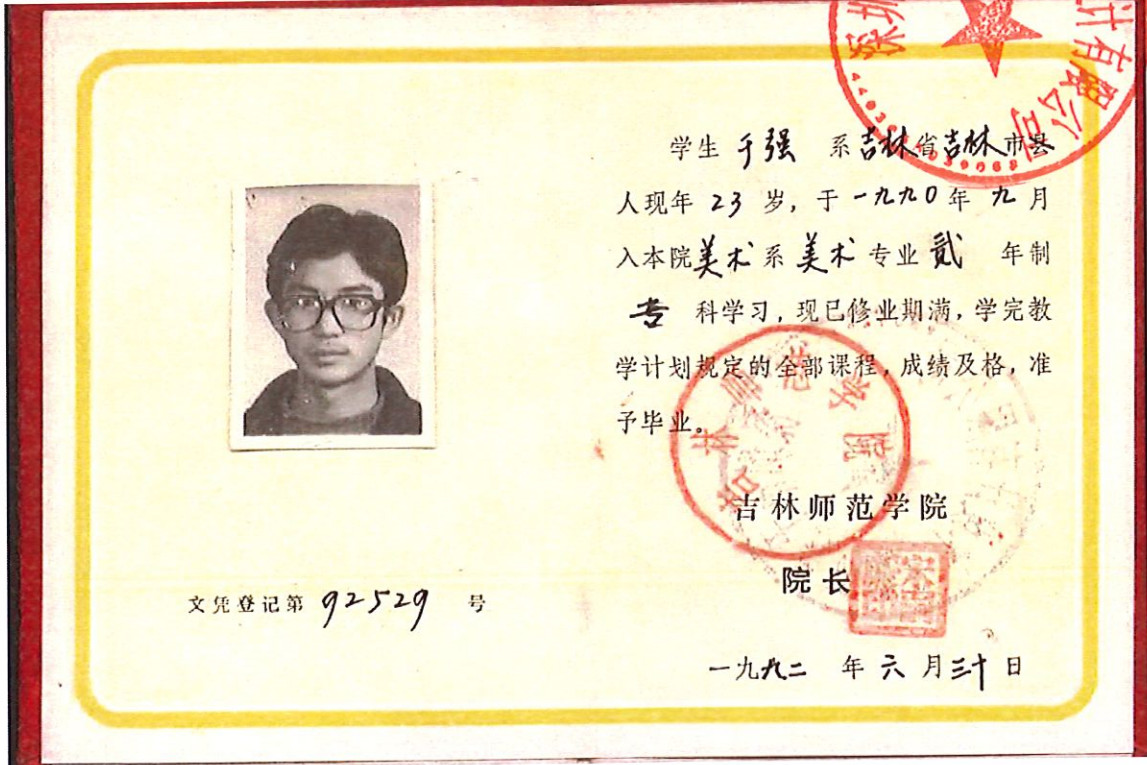 深圳
计有限公司
学生 于强 系吉林省吉林市县
人现年 23 岁，于一九九0年 九 月
入本院美术系 美术 专业 贰 年制
专 科学习，现已修业期满，学完教
学计划规定的全部课程，成绩及格，准
予毕业。
吉林师范学院
吉林师范学院
院长
文凭登记第 92529 号
一九九二 年 六 月三十日